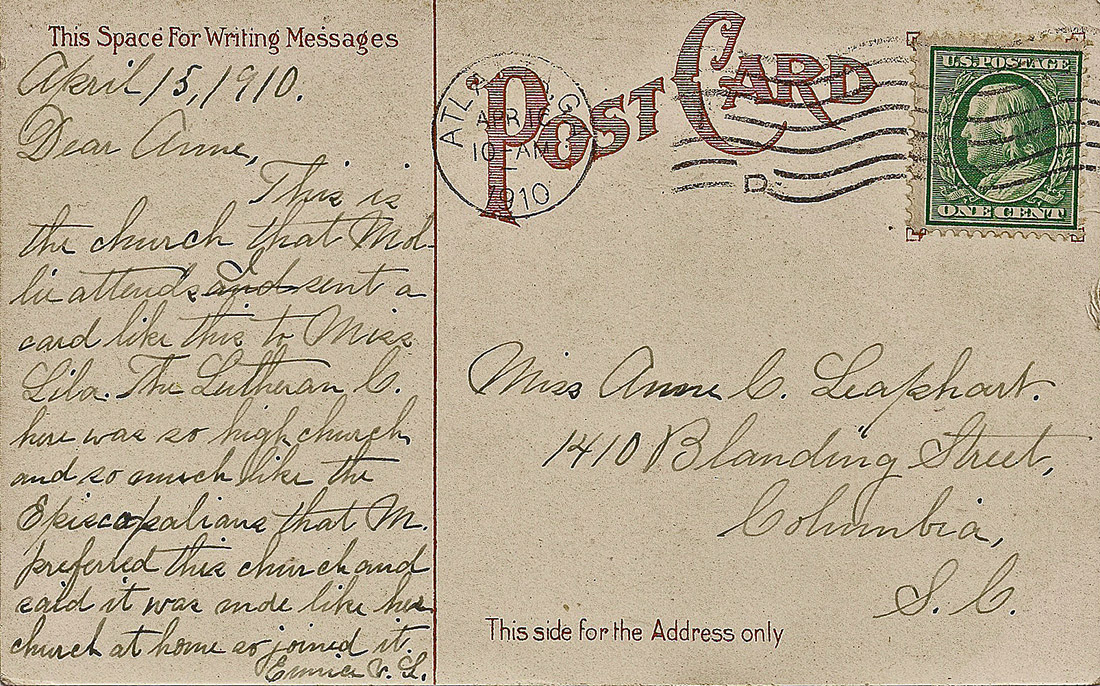 This Space For Writing Messages
April 15, 1910.
Dear Anne,
This is
the church that Mol-
lie attends and I sent a
card like this to Miss
Lila. The Lutheran C.
here was so high church
and so much like the
Episcopalians that M.
preferred this church and
said it was more like her
church at home so joined it.
Eunice V. L.
POST CARD
ATLANTA, GA
APR 16
10-AM
1910
D
U.S. POSTAGE
ONE CENT
Miss Anne C. Leaphart.
1410 Blanding Street,
Columbia,
S. C.
This side for the Address only